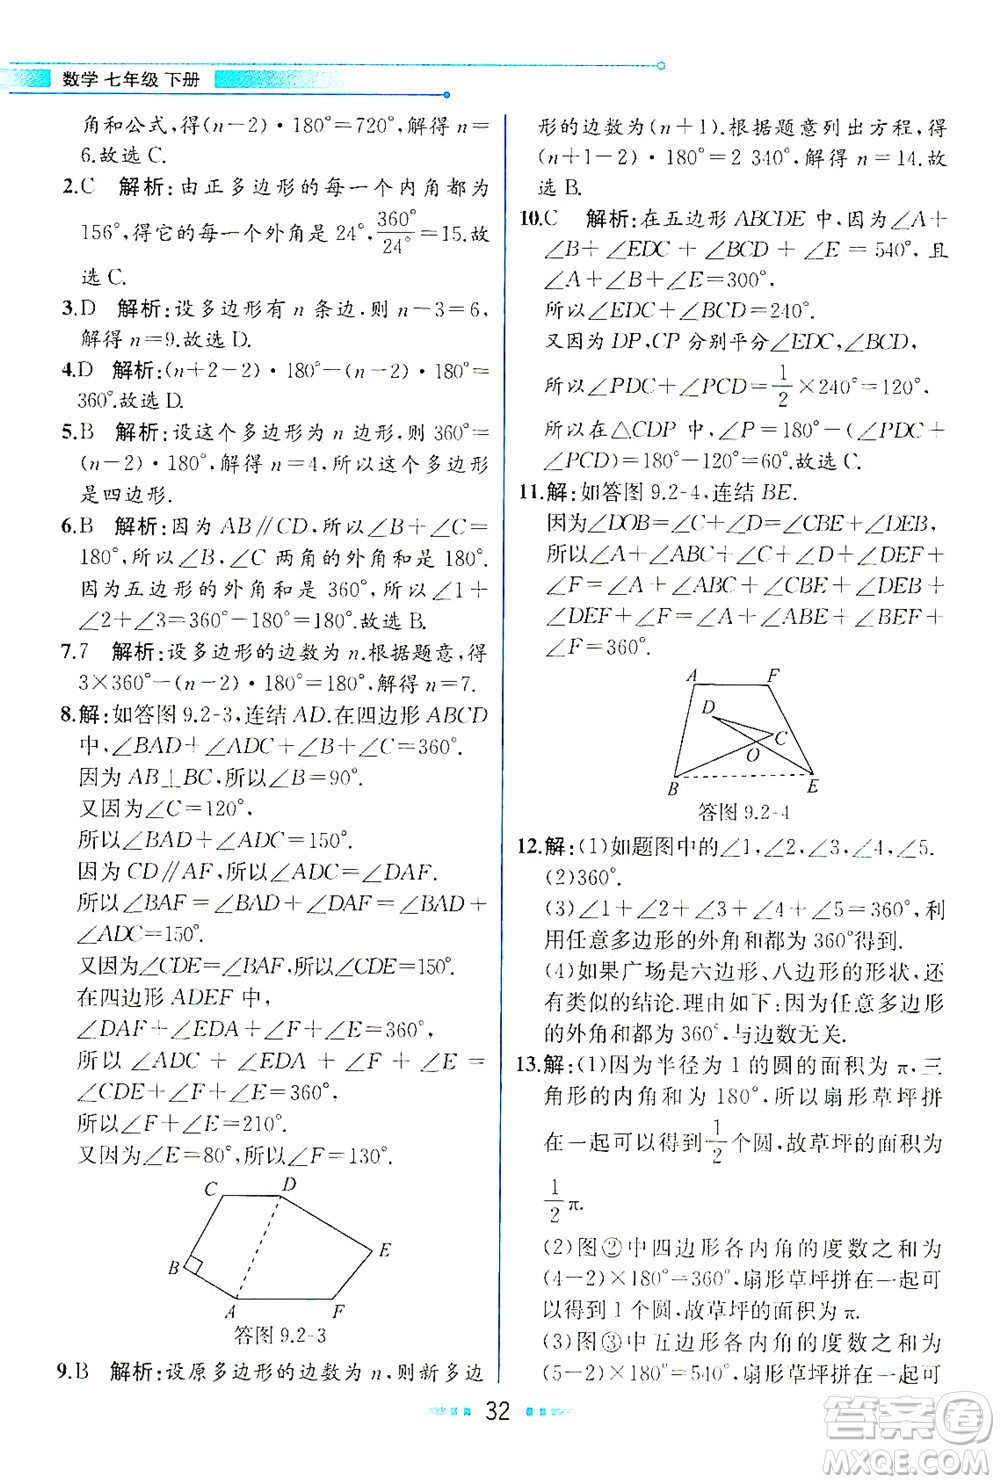 数学 七年级 下册
角和公式,得(n-2)·180°=720°,解得 n=
6.故选 C.
2.C 解析:由正多边形的每一个内角都为
156°,得它的每一个外角是 24°,360°/24°=15.故
选 C.
3.D 解析:设多边形有 n 条边,则 n-3=6,
解得 n=9.故选 D.
4.D 解析:(n+2-2)·180°-(n-2)·180°=
360°.故选 D.
5.B 解析:设这个多边形为 n 边形,则 360°=
(n-2)·180°,解得 n=4,所以这个多边形
是四边形.
6.B 解析:因为 AB∥CD,所以∠B+∠C=
180°,所以∠B,∠C 两角的外角和是 180°.
因为五边形的外角和是 360°,所以∠1+
∠2+∠3=360°-180°=180°.故选 B.
7.7 解析:设多边形的边数为 n.根据题意,得
3×360°-(n-2)·180°=180°,解得 n=7.
8.解:如答图 9.2-3,连结 AD.在四边形 ABCD
中,∠BAD+∠ADC+∠B+∠C=360°.
因为 AB⊥BC,所以∠B=90°.
又因为∠C=120°,
所以∠BAD+∠ADC=150°.
因为 CD∥AF,所以∠ADC=∠DAF.
所以∠BAF=∠BAD+∠DAF=∠BAD+
∠ADC=150°.
又因为∠CDE=∠BAF,所以∠CDE=150°.
在四边形 ADEF 中,
∠DAF+∠EDA+∠F+∠E=360°,
所以∠ADC+∠EDA+∠F+∠E=
∠CDE+∠F+∠E=360°.
所以∠F+∠E=210°.
又因为∠E=80°,所以∠F=130°.
C
D
B
E
A
F
答图 9.2-3
9.B 解析:设原多边形的边数为 n,则新多边
形的边数为(n+1).根据题意列出方程,得
(n+1-2)·180°=2 340°,解得 n=14.故
选 B.
10.C 解析:在五边形 ABCDE 中,因为∠A+
∠B+∠EDC+∠BCD+∠E=540°,且
∠A+∠B+∠E=300°,
所以∠EDC+∠BCD=240°.
又因为 DP,CP 分别平分∠EDC,∠BCD,
所以∠PDC+∠PCD=1/2×240°=120°,
所以在△CDP 中,∠P=180°-(∠PDC+
∠PCD)=180°-120°=60°.故选 C.
11.解:如答图 9.2-4,连结 BE.
因为∠DOB=∠C+∠D=∠CBE+∠DEB,
所以∠A+∠ABC+∠C+∠D+∠DEF+
∠F=∠A+∠ABC+∠CBE+∠DEB+
∠DEF+∠F=∠A+∠ABE+∠BEF+
∠F=360°.
A
F
D
C
O
B
E
答图 9.2-4
12.解:(1)如题图中的∠1,∠2,∠3,∠4,∠5.
(2)360°.
(3)∠1+∠2+∠3+∠4+∠5=360°,利
用任意多边形的外角和都为 360°得到.
(4)如果广场是六边形、八边形的形状,还
有类似的结论.理由如下:因为任意多边形
的外角和都为 360°,与边数无关.
13.解:(1)因为半径为 1 的圆的面积为 π,三
角形的内角和为 180°,所以扇形草坪拼
在一起可以得到1/2个圆,故草坪的面积为
1/2π.
(2)图②中四边形各内角的度数之和为
(4-2)×180°=360°,扇形草坪拼在一起可
以得到 1 个圆,故草坪的面积为 π.
(3)图③中五边形各内角的度数之和为
(5-2)×180°=540°,扇形草坪拼在一起可
32
答案圈
MXQE.COM